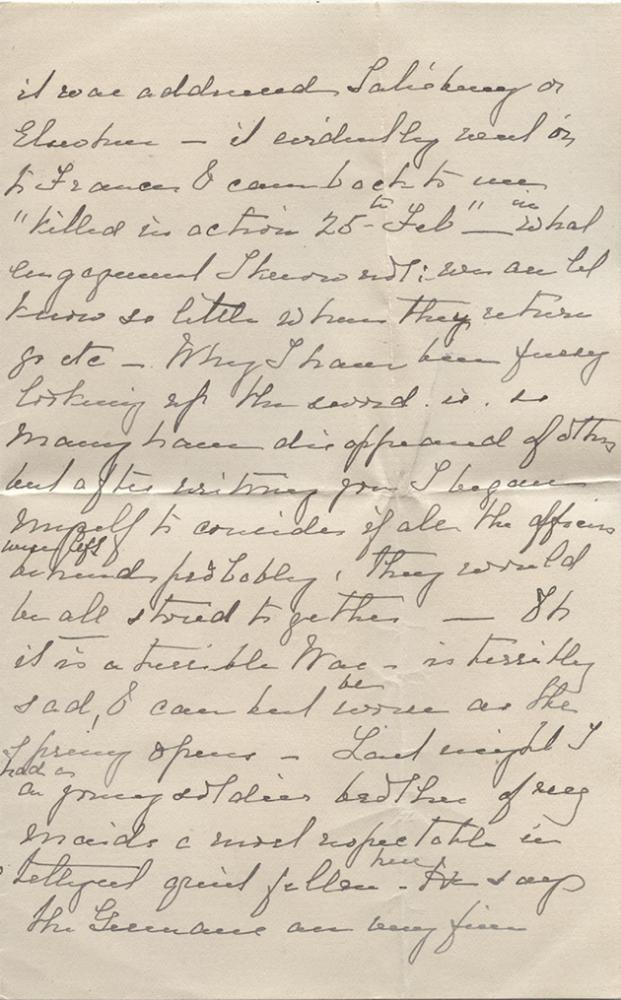 it was addressed Salisbury or
Elsewhere - it evidently went on
to France & came back to me
"Killed in action 25th Feb" - in what
engagement I know not: we are let
know so little when they return
go etc - Why I have been fussy
looking up the sword is so
many have disappeared of others
but after writing you I began
myself to consider if all the officers
were left
behind probably, they would
be all stored together - Oh
it is a terrible War - is terribly
sad, & can but be worse as the
Spring opens - Last night I
had a
young soldier brother of my
maids a most respectable in
telligent quiet fellow here. He says
the Germans are very fine